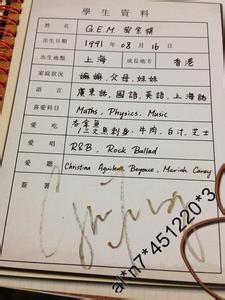 學生資料
姓名 G.E.M. 鄧紫棋
出生日期 1991年 08月 16日
出生地點 上海 成長地方 香港
家庭狀況 嫲嫲,父母,妹妹
語言 廣東話,國語,英語,上海話
喜愛科目 Maths, Physics, Music
愛吃 吞拿魚
/三文魚刺身,牛肉,白汁,芝士
愛唱 R&B, Rock Ballad
愛聽 Christina Aguilera, Beyonce, Mariah Carey
簽署
al*n7*451220*3